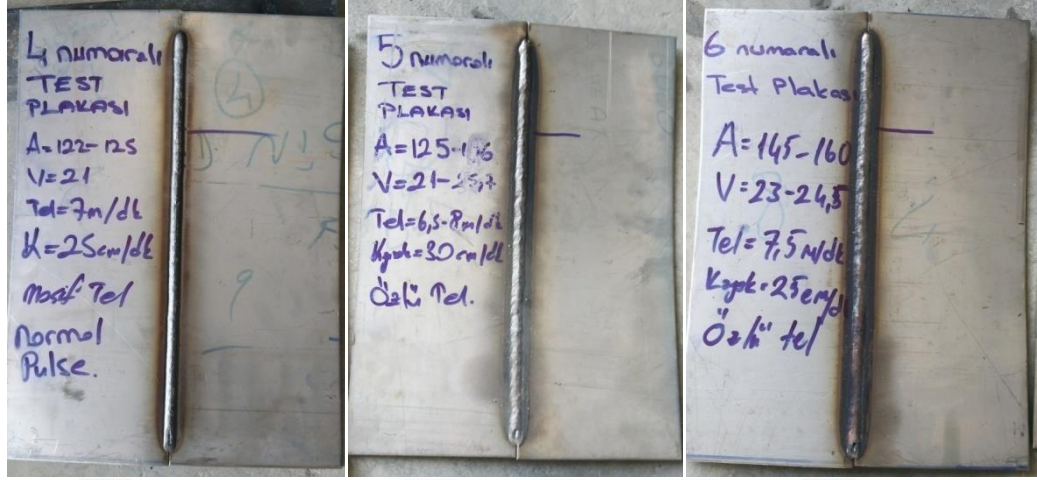 4 numaralı
TEST
PLAKASI
A=122-125
V=21
Tel=7m/dk
K=25cm/dk
Masif Tel
Normal
Pulse.
5 numaralı
TEST
PLAKASI
A=125-
V=21-
Tel=6,5-8m/dk
Kaynak=30cm/dk
Özlü Tel.
6 numaralı
Test Plakası
A=145-160
V=23-24,5
Tel=7,5m/dk
Kaynak=25cm/dk
Özlü tel